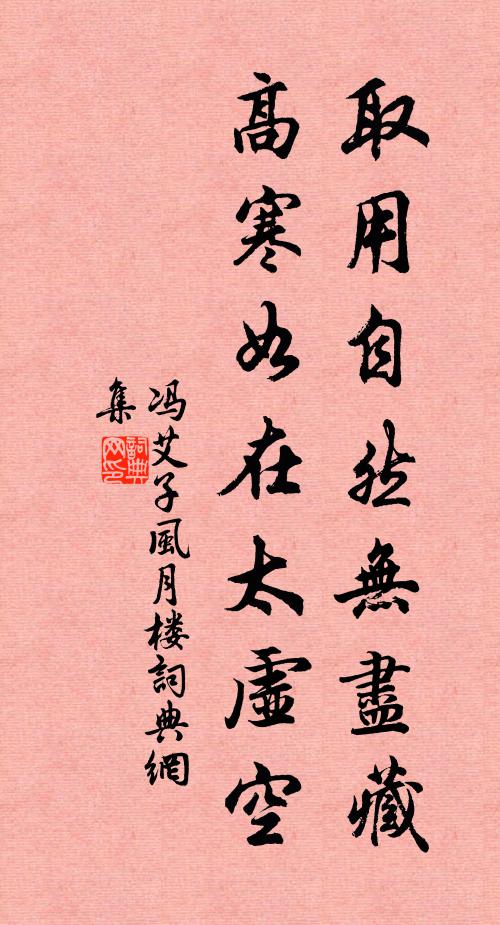 取用自然無盡藏
高寒如在太虛空
冯艾子風月楼詞典網
集
詞典
网印